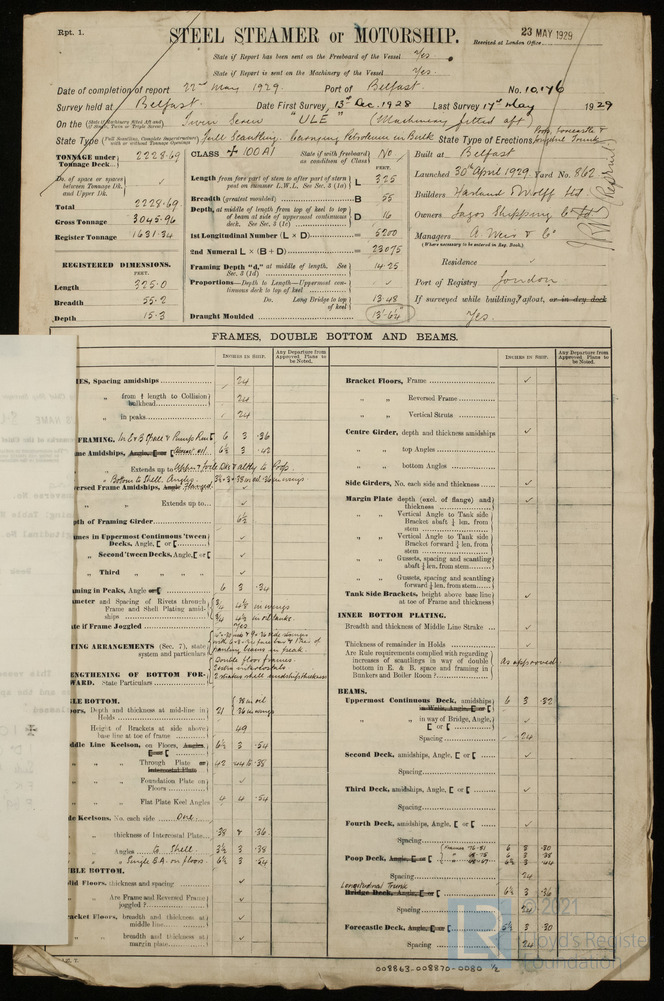 Rpt. 1.
STEEL STEAMER or MOTORSHIP.
23 MAY 1929
Received at London Office
State if Report has been sent on the Freeboard of the Vessel Yes
State if Report is sent on the Machinery of the Vessel Yes.
Date of completion of report 22nd May 1929. Port of Belfast. No. 10,176
Survey held at Belfast. Date First Survey 13th Dec. 1928 Last Survey 17th May 1929
On the Twin Screw "ULE" (Machinery fitted aft)
State Type Full Scantling. Carrying Petroleum in Bulk State Type of Erections Poop, Forecastle &
TONNAGE under Tonnage Deck 2228.69
Do. of space or spaces between Tonnage Dk. and Upper Dk.
Total 2228.69
Gross Tonnage 3045.96
Register Tonnage 1631.34
REGISTERED DIMENSIONS.
FEET.
Length 325.0
Breadth 55.2
Depth 15.3
CLASS + 100A1
State if with freeboard as condition of Class No
Length from fore part of stem to after part of stern post on summer L.W.L. See Sec. 3 (1a) L 325
Breadth (greatest moulded) B 55
Depth, at middle of length from top of keel to top of beam at side of uppermost continuous deck. See Sec. 3 (1c) D 16
1st Longitudinal Number (L × D) = 5200
2nd Numeral L × (B + D) = 23075
Framing Depth "d," at middle of length. See Sec. 3 (1d) 14.25
Proportions—Depth to Length—Uppermost continuous deck to top of keel
Do. Long Bridge to top of keel 13.48
Draught Moulded 13'-6¼"
Built at Belfast
Launched 30th April 1929 Yard No. 862
Builders Harland & Wolff Ltd
Owners Lagos Shipping Co Ltd
Managers A. Weir & Co
(Where necessary to be entered in Reg. Book.)
Residence
Port of Registry London
If surveyed while building, afloat, or in dry dock
Yes.
FRAMES, DOUBLE BOTTOM AND BEAMS.
INCHES IN SHIP.
Any Departure from Approved Plans to be Noted.
INCHES IN SHIP.
Any Departure from Approved Plans to be Noted.
ES, Spacing amidships 24
" from ¾ length to Collision bulkhead 24
" in peaks 24
FRAMING. 6 3 .36
me Amidships, Angle, 6½ 3 .42
" Extends up to
Bottom to Shell. Angles
ersed Frame Amidships, Angle
" Extends up to
pth of Framing Girder 6½
mes in Uppermost Continuous 'tween Decks, Angle, [ or [
" Second 'tween Decks, Angle, [ or [
" Third "
aming in Peaks, Angle or [ 6 3 .34
meter and Spacing of Rivets through Frame and Shell Plating amidships
te if Frame Joggled Yes
TING ARRANGEMENTS (Sec. 7), state system and particulars
ENGTHENING OF BOTTOM FORWARD. State Particulars
Double floor frames.
LE BOTTOM.
oors, Depth and thickness at mid-line in Holds 21 .38 in oil .36 in wings
Height of Brackets at side above base line at toe of frame 49
ddle Line Keelson, on Floors, Angles 6½ 3 .54
" " Through Plate or Intercostal Plate 42 .44 to .38
" " Foundation Plate on Floors
" " Flat Plate Keel Angles 4 4 .54
de Keelsons. No. each side One.
" thickness of Intercostal Plate 38 .36
" Angles to Shell. 3½ 3 .38
" Single B.A. on floors. 6½ 3 .54
BLE BOTTOM.
lid Floors, thickness and spacing
" Are Frame and Reversed Frame joggled?
racket Floors, breadth and thickness at middle line
" breadth and thickness at margin plate
Bracket Floors, Frame
" " Reversed Frame
" " Vertical Struts
Centre Girder, depth and thickness amidships
" top Angles
" bottom Angles
Side Girders, No. each side and thickness
Margin Plate depth (excl. of flange) and thickness
" Vertical Angle to Tank side Bracket abaft ¼ len. from stem
" Vertical Angle to Tank side Bracket forward ¼ len. from stem
" Gussets, spacing and scantling abaft ¼ len. from stem
" Gussets, spacing and scantling forward ¼ len. from stem
Tank Side Brackets, height above base line at toe of Frame and thickness
INNER BOTTOM PLATING.
Breadth and thickness of Middle Line Strake
Thickness of remainder in Holds
Are Rule requirements complied with regarding increases of scantlings in way of double bottom in E. & B. space and framing in Bunkers and Boiler Room? As approved
BEAMS.
Uppermost Continuous Deck, amidships 6 3 .32
in Wells, Angle, [ or [
" " in way of Bridge, Angle, [ or [
Spacing 24
Second Deck, amidships, Angle, [ or [
Spacing
Third Deck, amidships, Angle, [ or [
Spacing
Fourth Deck, amidships, Angle, [ or [
Spacing
Poop Deck, Angle, [ or [ 6 3 .30
6 3 .38
6½ 3 .44
Spacing 24
Longitudinal Trunk
Bridge Deck, Angle, [ or [ 6½ 3 .36
Spacing 24
Forecastle Deck, Angle, [ or [ 5½ 3 .30
Spacing 24
© 2021
Lloyd's Register
Foundation
008863-008870-0080 ½